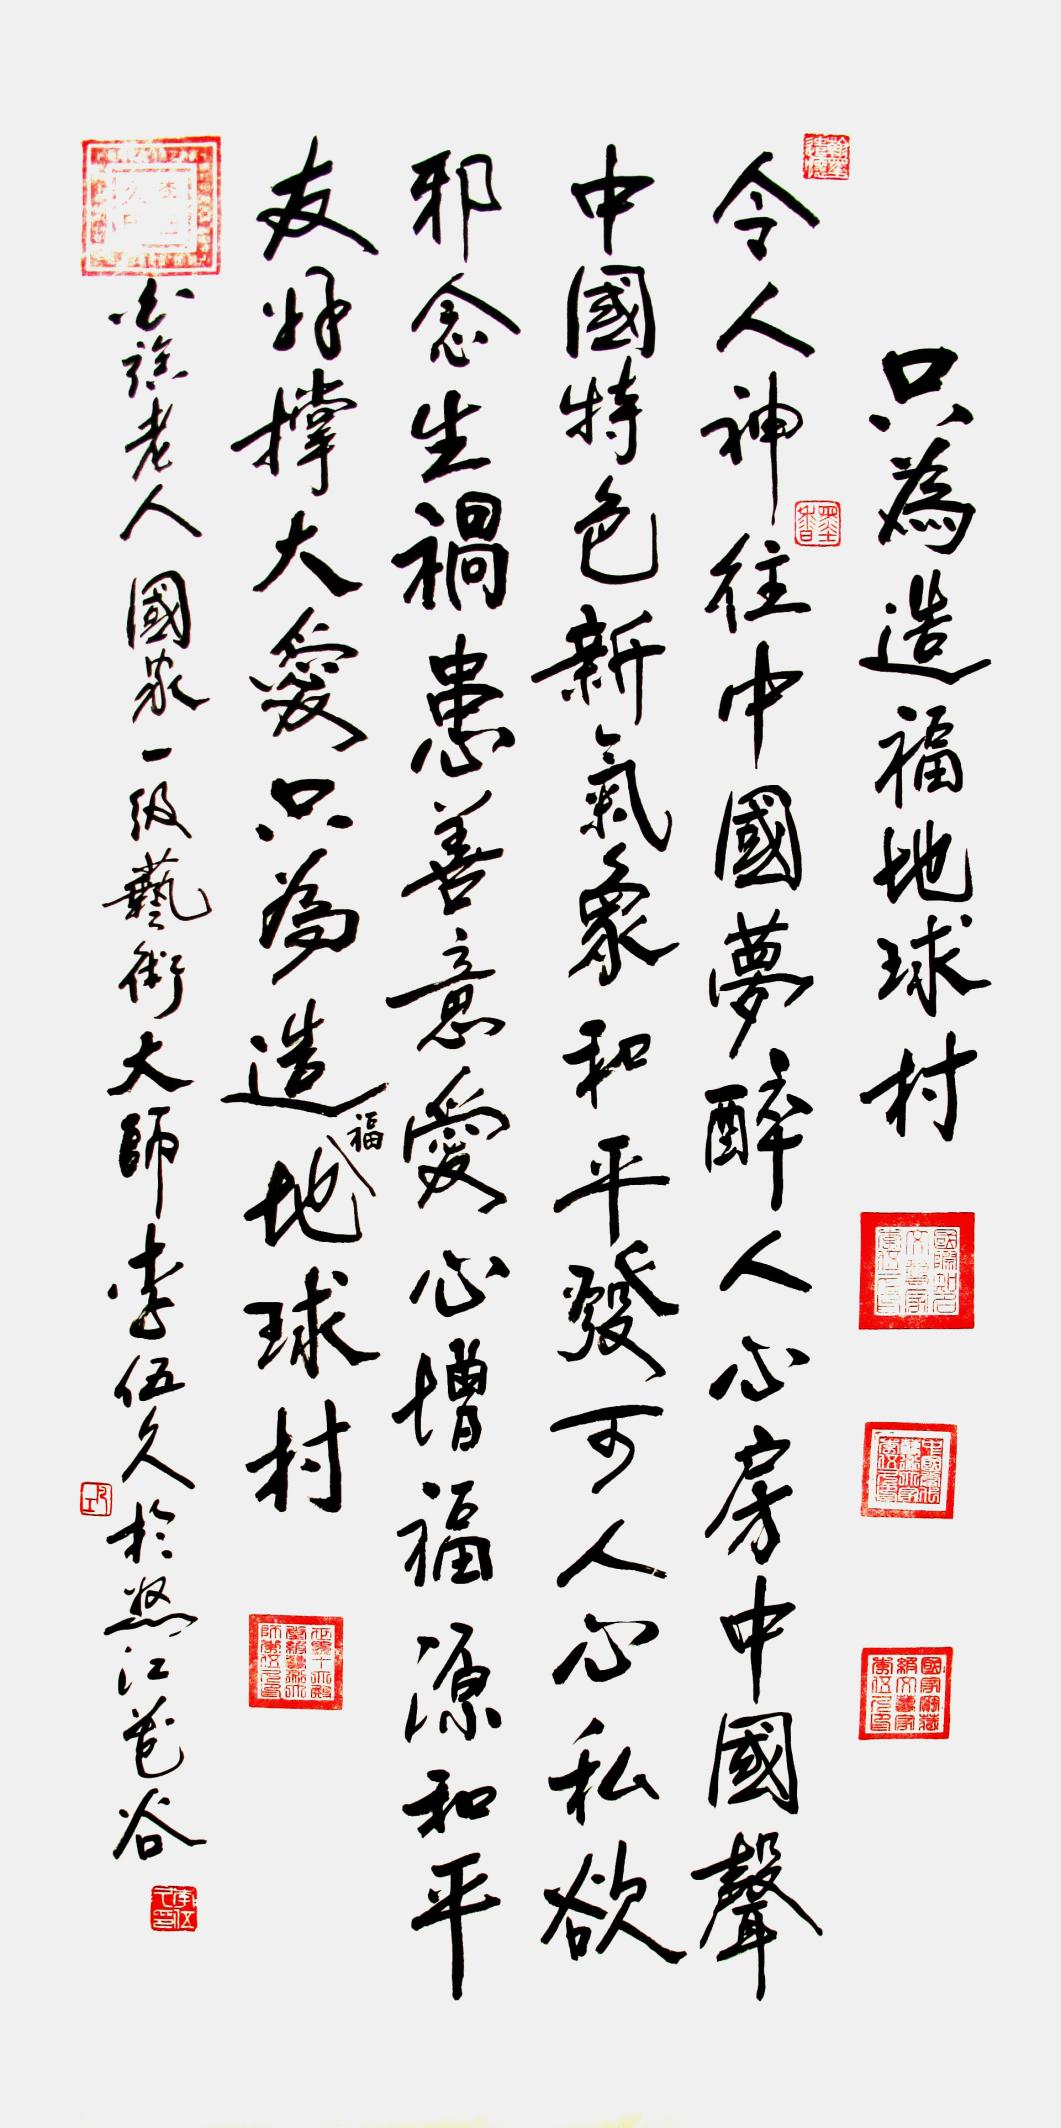 只為造福地球村
令人神往中國夢醉人心房中國聲
中國特色新氣象和平發可人心私欲
邪念生禍患善意愛心增福源和平
友好撑大愛只為造福地球村
老人國家一级藝術大師李伍久於怒江花谷